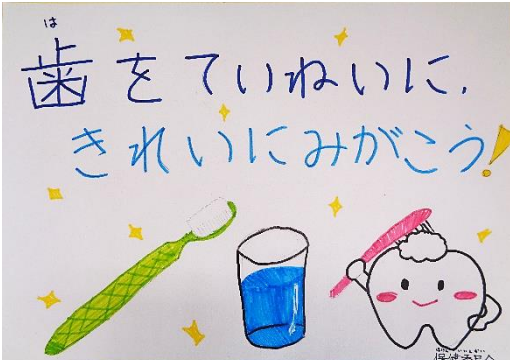 は
歯をていねいに、
きれいにみがこう!
保健委員会